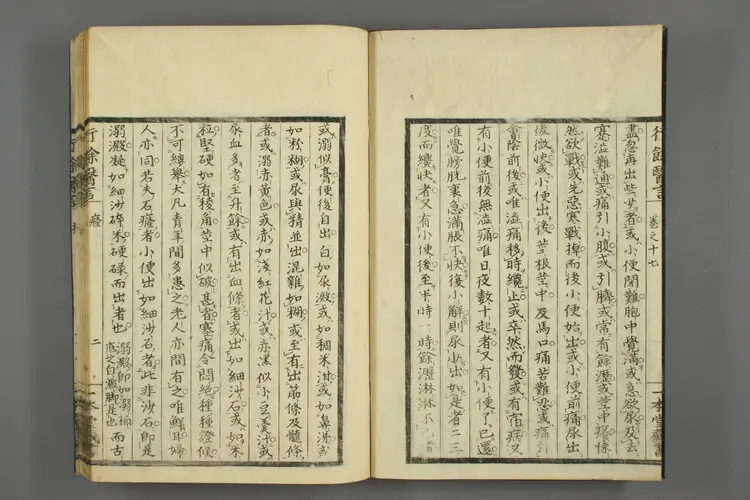 行餘醫言
卷之十七
盡忽再出些少者或小便閉難胞中覺滿或急欲尿及去
寔澁難通或痛引小腹或引臍或常有餘瀝或莖中癢悚
然欲戰或先惡寒戰掉而後小便始出或小便前痛尿出
後微快或小便出後莖根莖中及馬口痛苦難忍或痛引
會陰前後或唯澁痛移時纔止或卒然而發或有宿病又
有小便前後無澁痛唯日夜數十起者又有小便了已還
唯覺膀胱裏急滿脹不快復小解則尿少出如是者二三
度而纔快者又有小便後至半時一時餘瀝淋淋不
或溺似膏便後自出白如尿澱或如稠米泔或如鼻涕或
如粉糊或尿與精並出混雜如糊或至有出筋條及髓條
者或溺赤黃色或赤如淺紅花汁或赤黑似小豆羹汁或
尿血多者至升餘或有出血條者或出如細沙石或如米
粒堅硬如有稜角莖中似破甚省塞痛令悶絶種種證候
不可縷舉大凡青年間多患之老人亦間有之唯鮮耳婦
人亦同若夫石癃者小便出如細沙石者此非沙石即是
溺澱凝如細沙碎米硬碌而出者也
溺澱即如溺桶
底之白澱脚是也
而古
行餘醫言
癃
二
一本堂藏書